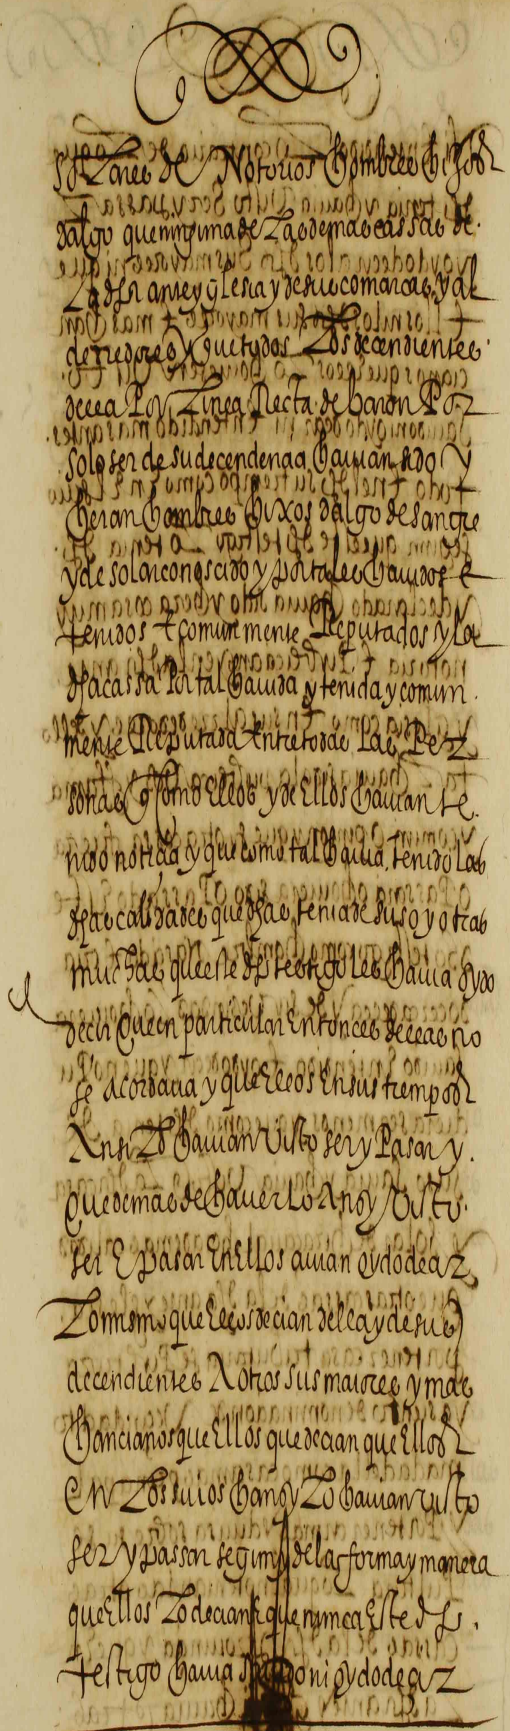 Solares de Notorios hombres hijos
dalgo que ninguna de las demas cassas de
la dha anteyglesia y de sus comarcas y al
derredores y que todos los decendientes
dessa por linea Recta de baron Por
solo ser de su decendencia havian sido y
heran hombres hixos dalgo de sangre
y de solar conoscido y por tales havidos e
tenidos e comunmente Reputados y la
dha cassa Por tal havida y tenida y comun
mente Reputada entre todas las Per
sonas q como ellos y de Ellos havian te
nido noticia y que como tal havia tenido las
dhas calidades que dhas tenia de suso y otras
muchas que este dho testigo les havia oydo
decir Que en particular Entonces dellas no
se acordava y que Ellos En sus tiempos
Ansi lo havian visto ser y Pasar y
Que demas de haverlo Ansy Visto
ser E pasar En Ellos avian oydo decir
lo mismo que Ellos decian della y de sus
decendientes A otros sus maiores y mas
hancianos que Ellos que decian que Ellos
En los suios hansy lo havian visto
ser y passar segun y de la forma y manera
que Ellos lo decian E que nunca Este dho
testigo havia ni oydo decir